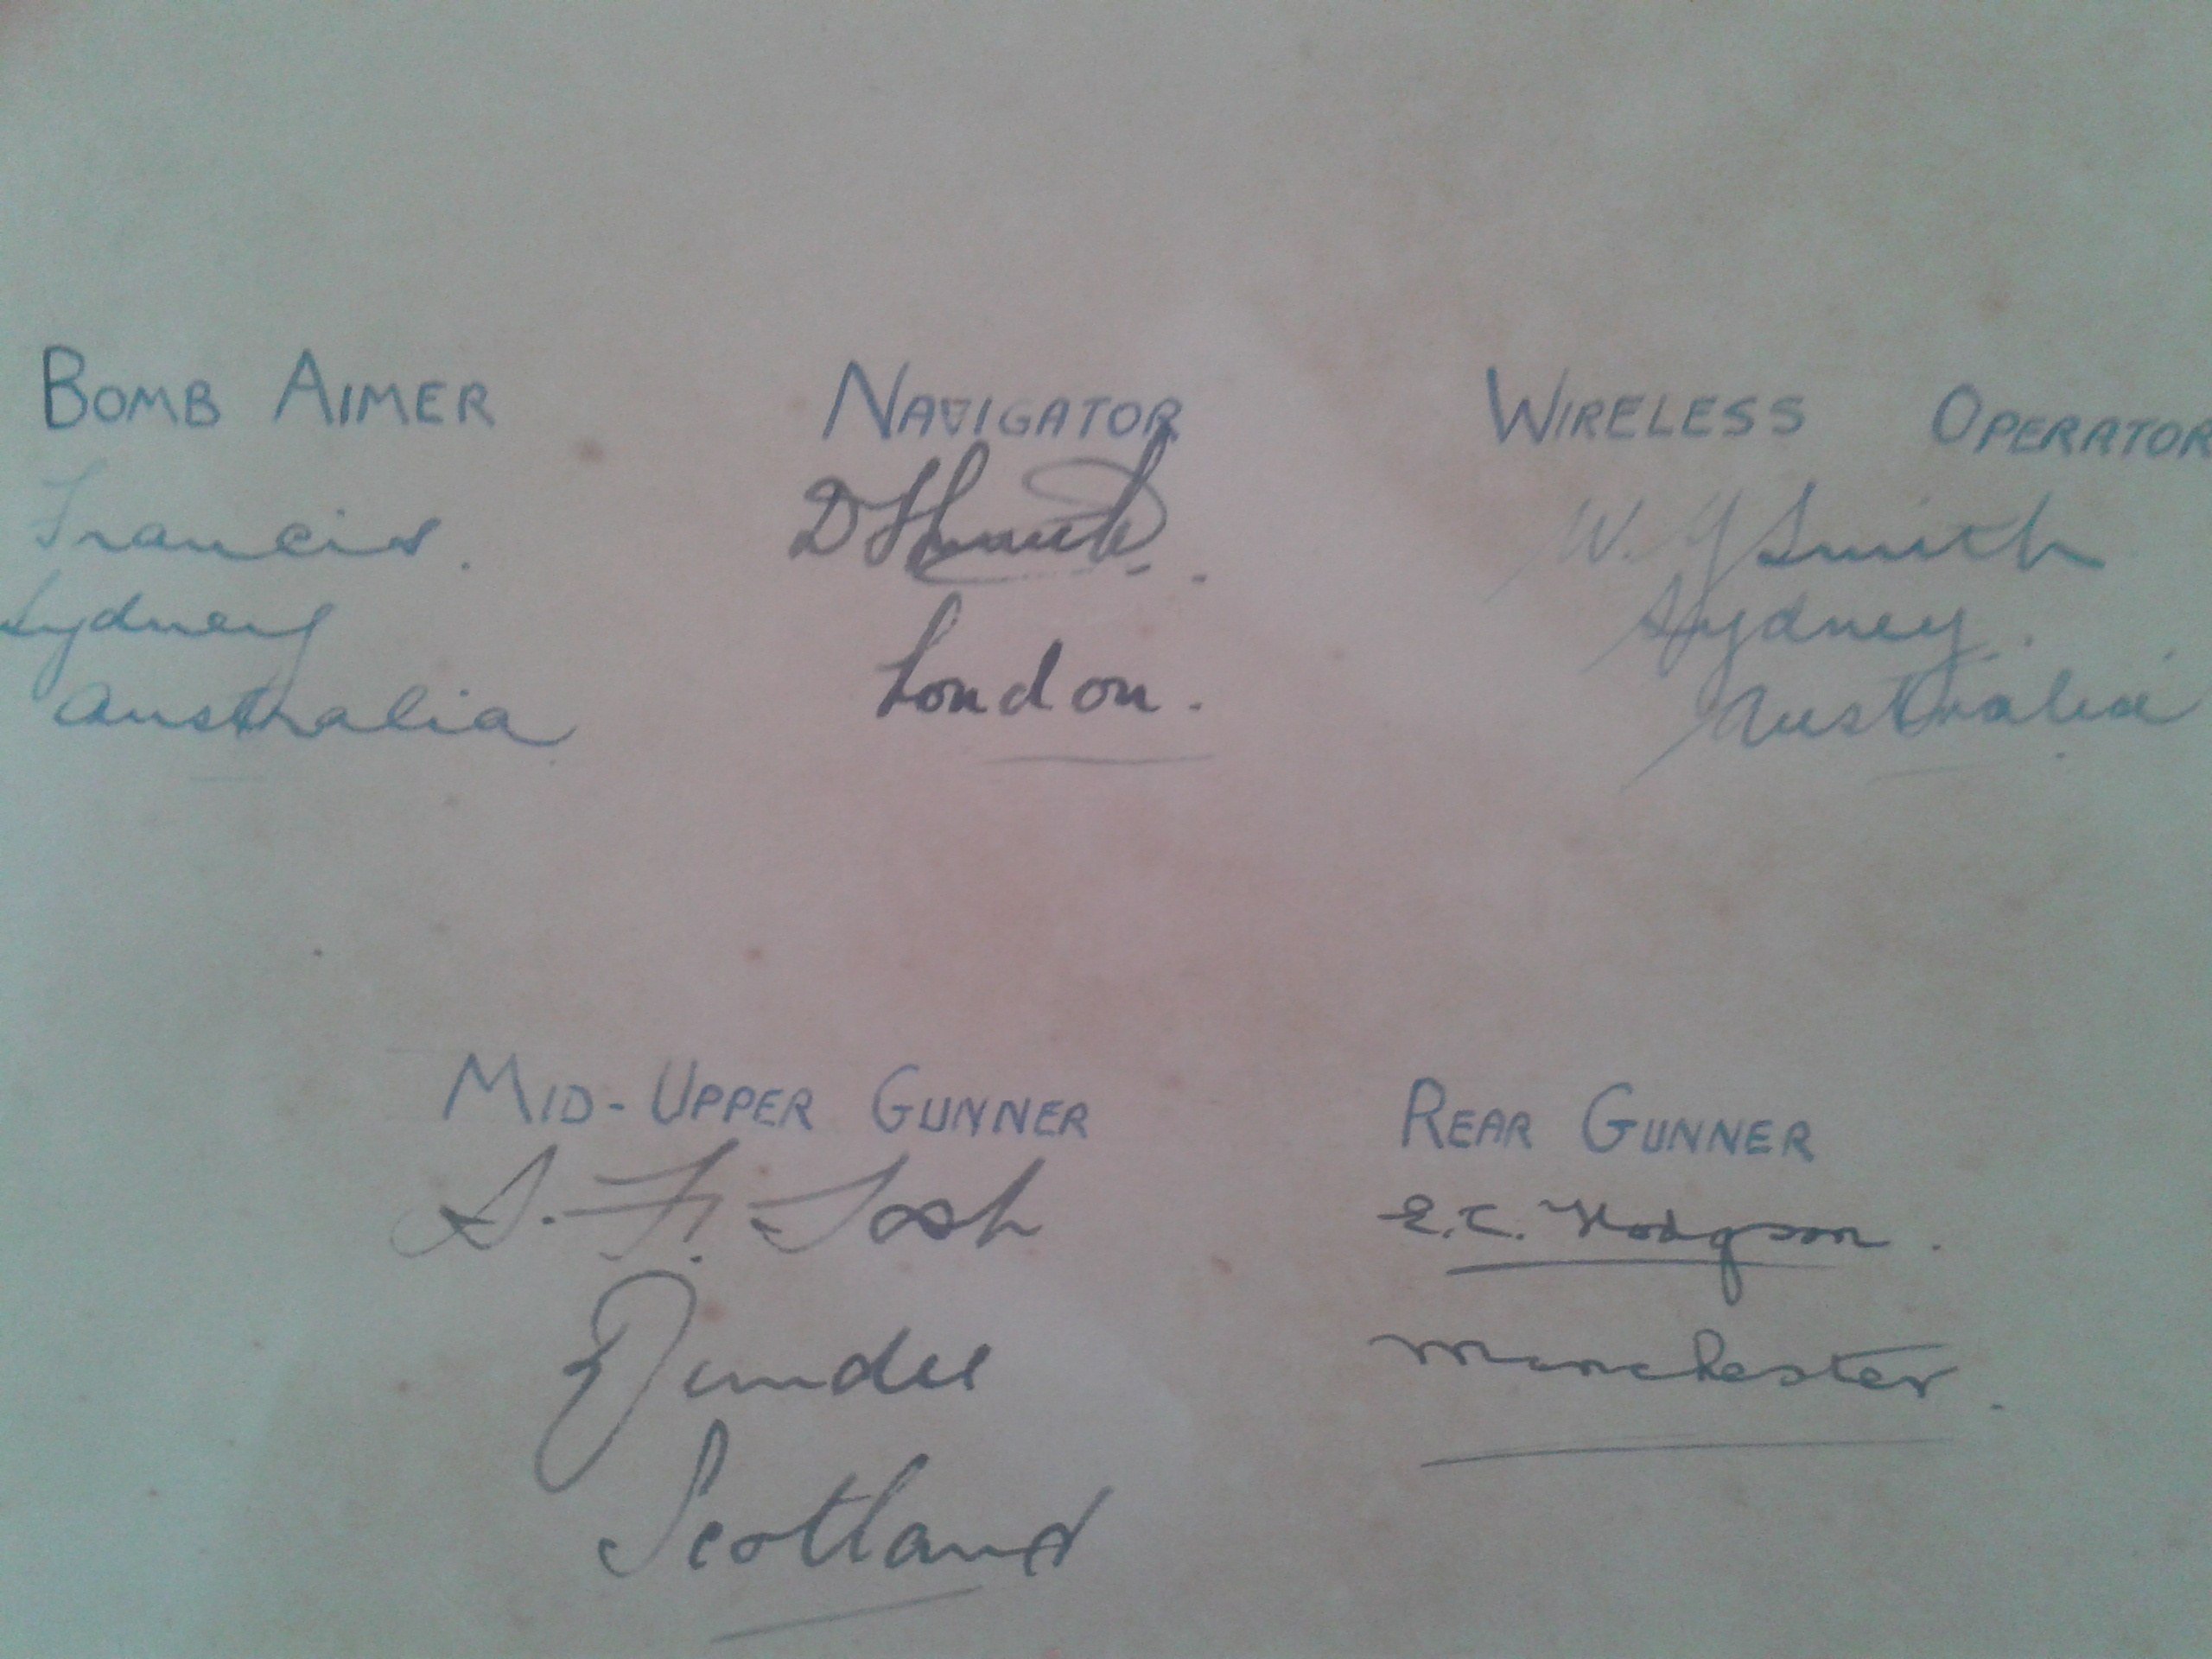 BOMB AIMER
Francis.
Sydney
Australia
NAVIGATOR
London.
WIRELESS OPERATOR
W. Y Smith
Sydney.
Australia
MID-UPPER GUNNER
S. F. Tosh
Dundee
Scotland
REAR GUNNER
E.C. Hodgson.
Manchester.